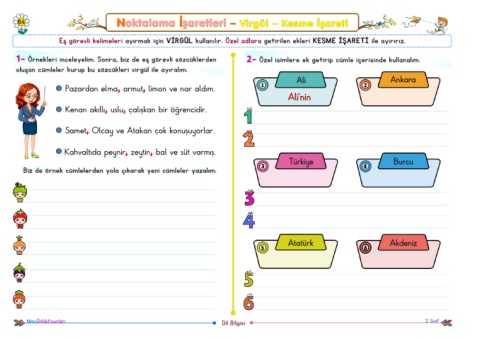 Noktalama İşaretleri – Virgül – Kesme İşareti
Eş görevli kelimeleri ayırmak için VİRGÜL kullanılır. Özel adlara getirilen ekleri KESME İŞARETİ ile ayırırız.
1- Örnekleri inceleyelim. Sonra, biz de eş görevli sözcüklerden
oluşan cümleler kurup bu sözcükleri virgül ile ayıralım.
Pazardan elma, armut, limon ve nar aldım.
Kenan akıllı, uslu, çalışkan bir öğrencidir.
Samet, Olcay ve Atakan çok konuşuyorlar.
Kahvaltıda peynir, zeytin, bal ve süt varmış.
Biz de örnek cümlelerden yola çıkarak yeni cümleler yazalım.
2- Özel isimlere ek getirip cümle içerisinde kullanalım.
1 Ali
Ali'nin
2 Ankara
1
2
3 Türkiye
4 Burcu
3
4
5 Atatürk
6 Akdeniz
5
6
Dil Bilgisi
2. Sınıf